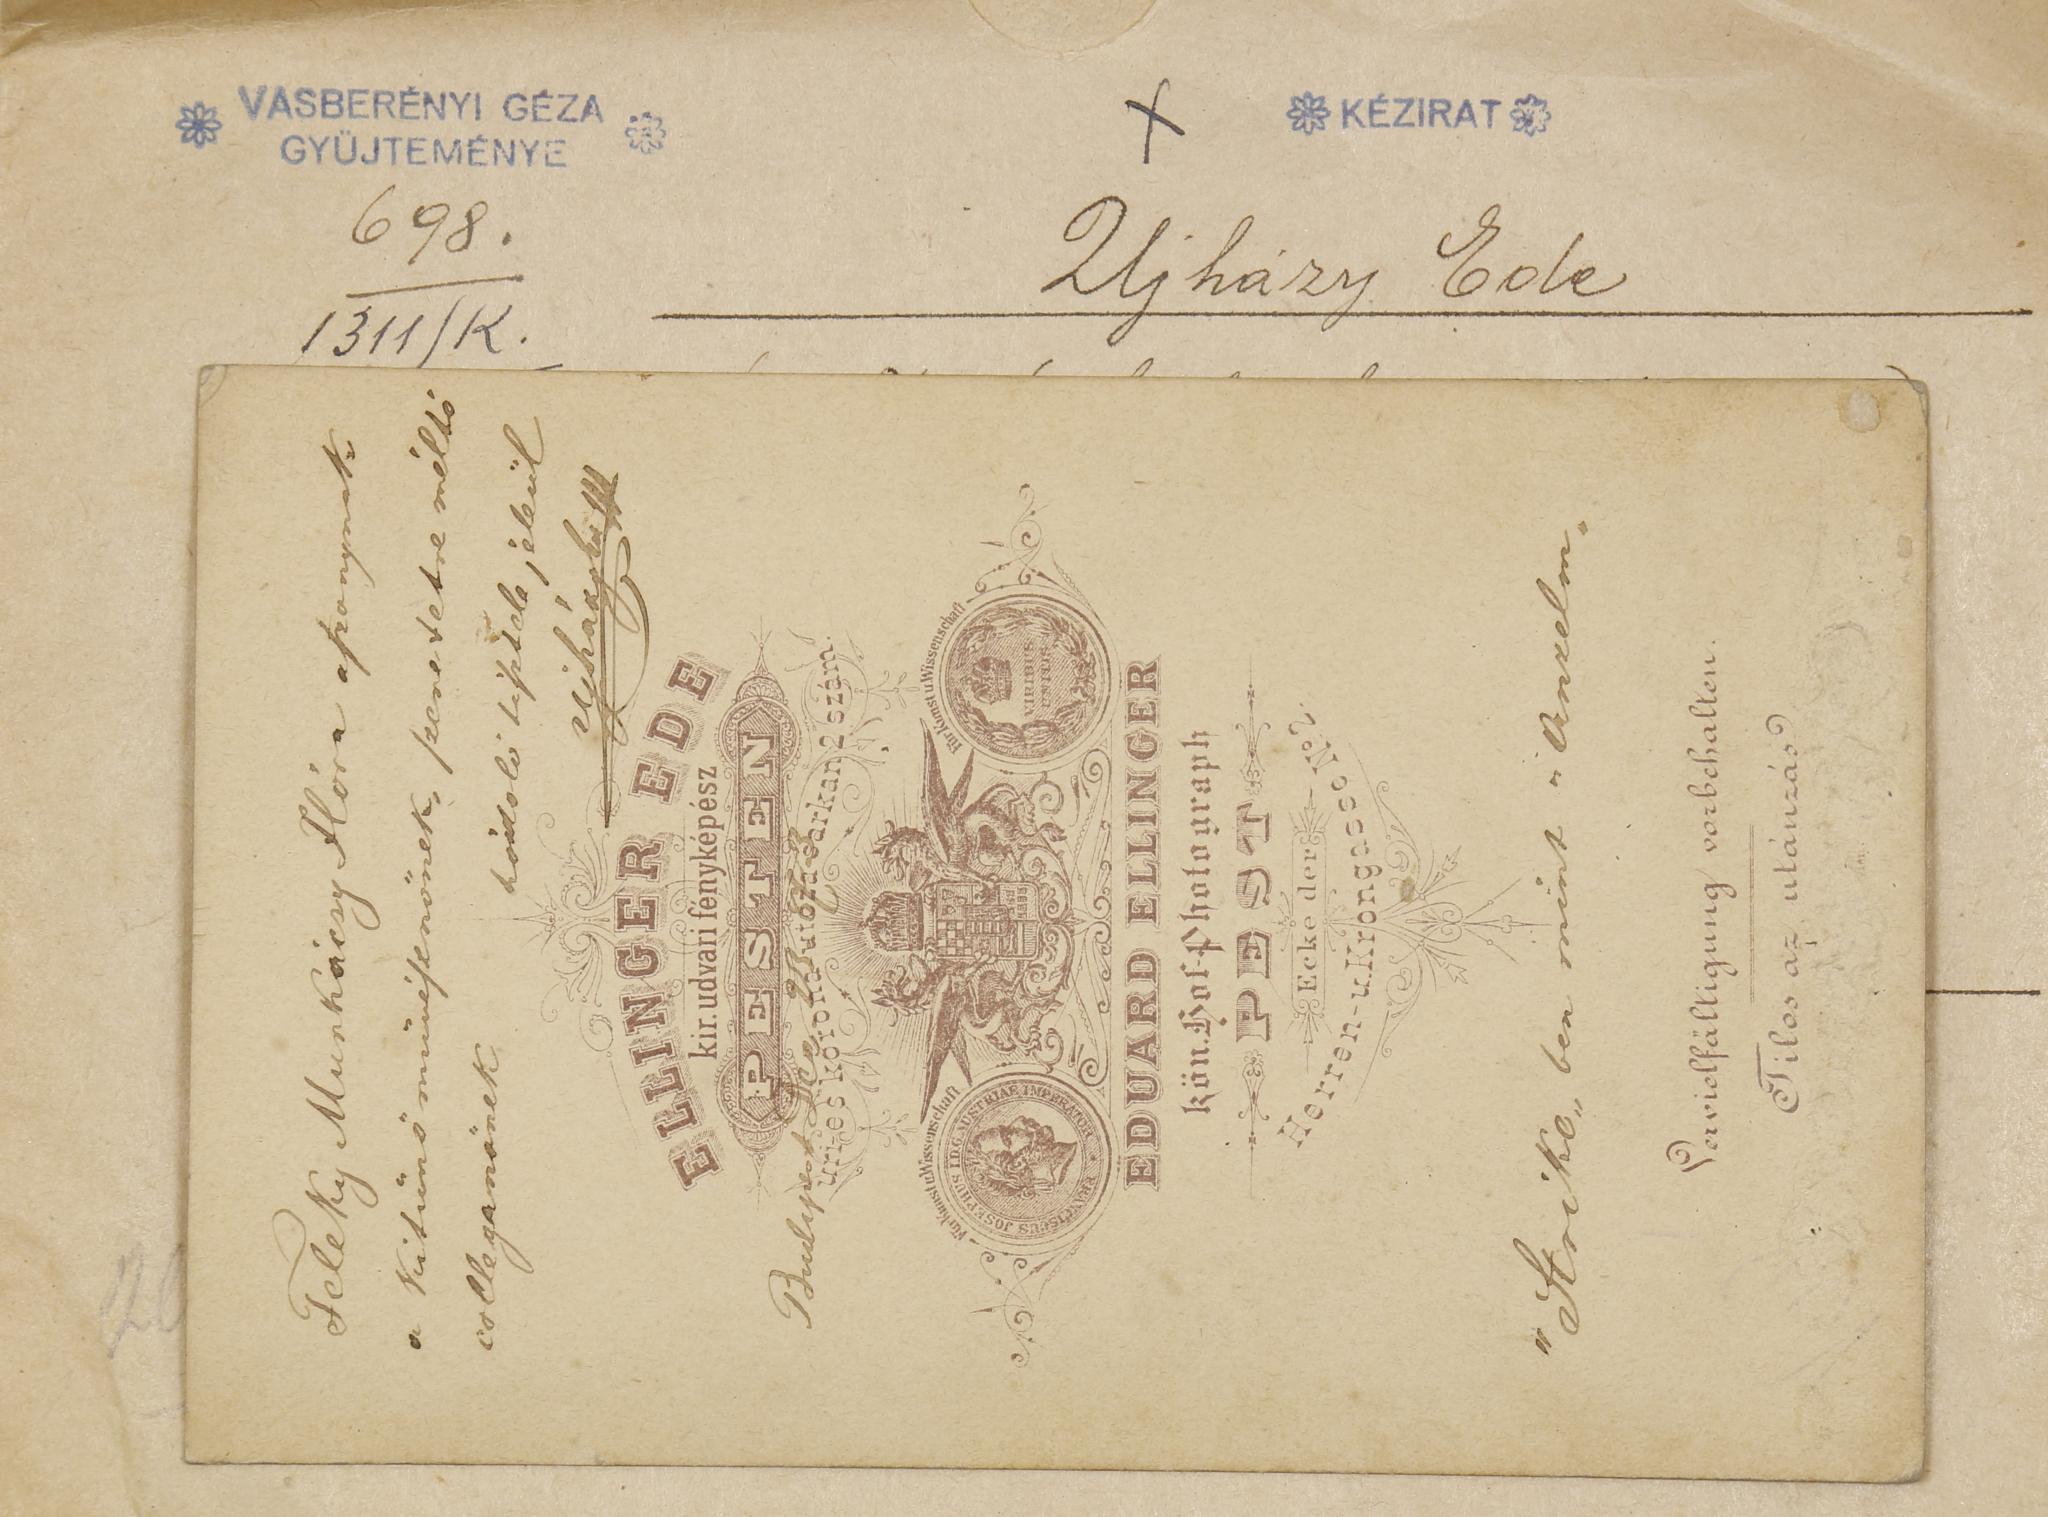 VASBERÉNYI GÉZA
GYÜJTEMÉNYE
KÉZIRAT
698.
1311/K.
Ujházy Ede
Feleky Munkácsy Flóra aszonynak
a kitünő müvésznőnek, szeretetre méltó
colleganőnek
hódoló tisztele jeléül
Ujházy
ELLINGER EDE
kir. udvari fényképész
PESTEN
uri-és korona utcza sarkan 2 szám.
Budapest Dec
Für Kunst u. Wissenschaft
Für Kunst u. Wissenschaft
FRANCISCUS JOSEPHUS I.D.G. AUSTRIAE IMPERATOR
VIRIBUS
UNITIS
EDUARD ELLINGER
kön. Hof-Photograph
PEST
Ecke der
Herren-u. Krongasse No. 2.
"Strike„ ben mint „Anzelm.
Vervielfältigung vorbehalten.
Tilos az utánzás